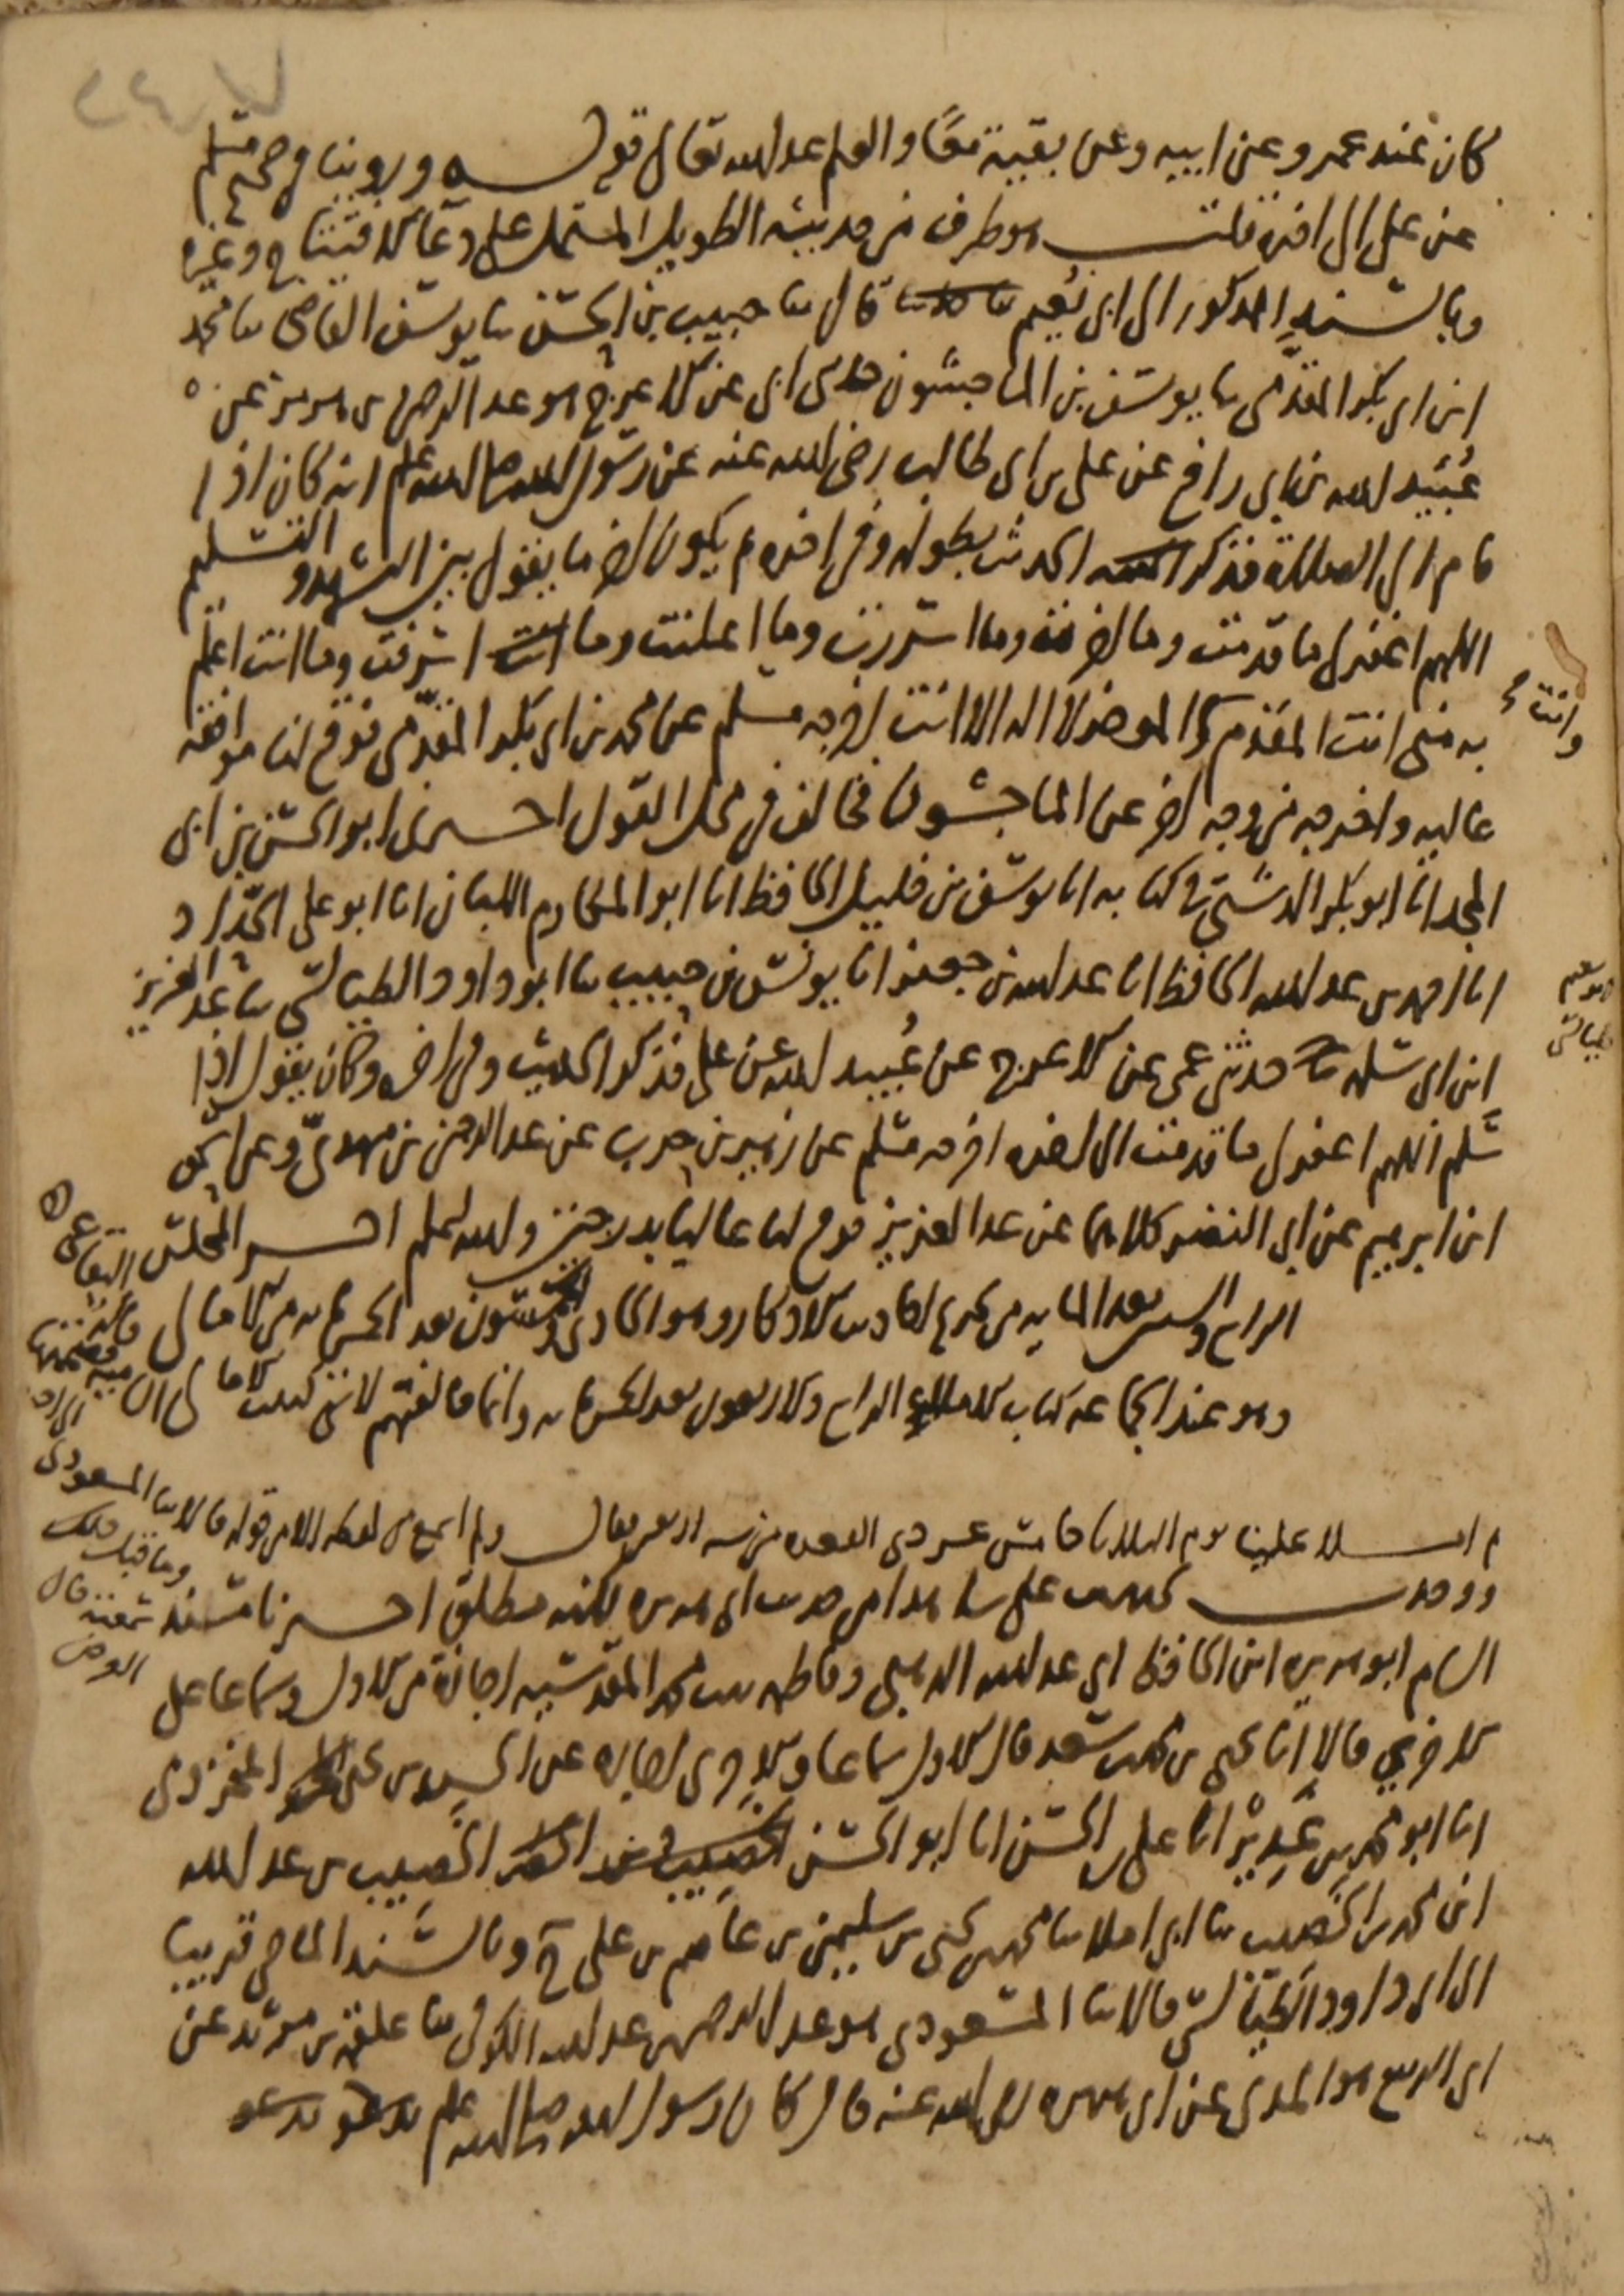 كان عند عمرو عن ابيه وعن بقية معًا والعلم عند الله تعالى قوله وروينا في صحيح مسلم
عن علي الى اخره قلت هو طرف من حديثه الطويل المشتمل على دعاء الافتتاح وغيره
وبالسند المذكور الى ابي نعيم قال ثنا حبيب بن الحسن ثنا يوسف القاضي ثنا محمد
ابن ابي بكر المقدمي ثنا يوسف بن الماجشون حدثني ابي عن الاعرج هو عبد الرحمن بن هرمز عن
عُبَيد الله بن ابي رافع عن علي بن ابي طالب رضي الله عنه عن رسول الله صلى الله عليه وسلم انه كان اذا
قام الى الصلاة فذكر الحديث بطوله وفي اخره ثم يكون اخر ما يقول بين التشهد والتسليم
اللهم اغفر لي ما قدمت وما اخرت وما اسررت وما اعلنت وما اسرفت وما انت اعلم
به مني انت المقدم وانت الموخر لا اله الا انت اخرجه مسلم عن محمد بن ابي بكر المقدمي فوقع لنا موافقة
عاليه واخرجه من وجه اخر عن الماجشون فخالف في محل القول اخبرني ابو الحسن بن ابي
المجد انا ابو بكر الدشتي في كتابه انا يوسف بن خليل الحافظ انا ابو المكارم اللبان انا ابو علي الحداد
انا احمد بن عبد الله الحافظ انا عبد الله بن جعفر انا يونس بن حبيب ثنا ابو داود الطيالسي ثنا عبد العزيز
ابن ابي سلمه حدثني عمي عن الاعرج عن عُبيد الله عن علي فذكر الحديث وفي اخره وكان يقول اذا
سَلم اللهم اغفر لي ما قدمت الى اخره اخرجه مسلم عن زهير بن حرب عن عبد الرحمن بن مهدي وعن اسحق
ابن ابرهيم عن ابي النضر كلاهما عن عبد العزيز فوقع لنا عاليا بدرجتين والله اعلم اخر المجلس
الرابع والستين بعد المايه من تخريج احاديث الاذكار وهو الحادي والخمسون بعد الخمس مايه من الامالي
وهو عند الجماعه كتاب الرابع والاربعون بعد الخمس مايه وانما خالفتهم لانني كتبت
ثم املا علينا يوم الثلاثا خامس عشر ذي القعده من سنه اربعين فقال ولم اسمع من لفظه الا من قوله قالا ثنا المسعودي
وما قبله
ووجدت على شاهدا من حديث ابي هريره لكنه مطلق اخبرنا مسند
الشام ابو هريره ابن الحافظ ابي عبد الله الذهبي وفاطمه بنت محمد المقدسيه اجازة من الاول وسماعا على
الاخرى قالا انا يحيى بن محمد بن سعد قال الاول سماعا والاخرى اجازه عن الحسن بن يحيى المخزومي
انا ابو محمد بن غدير انا علي بن الحسن انا ابو الحسن الخصيب بن عبد الله
ابن محمد بن الخصيب ثنا ابي املا ثنا محمد بن يحيى بن سليمن بن عاصم بن علي ح وبالسند الماضي قريبا
الى ابي داود الطيالسي قالا ثنا المسعودي هو عبد الرحمن بن عبد الله الكوفي ثنا علقمه بن مرثد عن
ابي الربيع هو المدني عن ابي هريره رضي الله عنه قال كان رسول الله صلى الله عليه وسلم يدعو
وانت